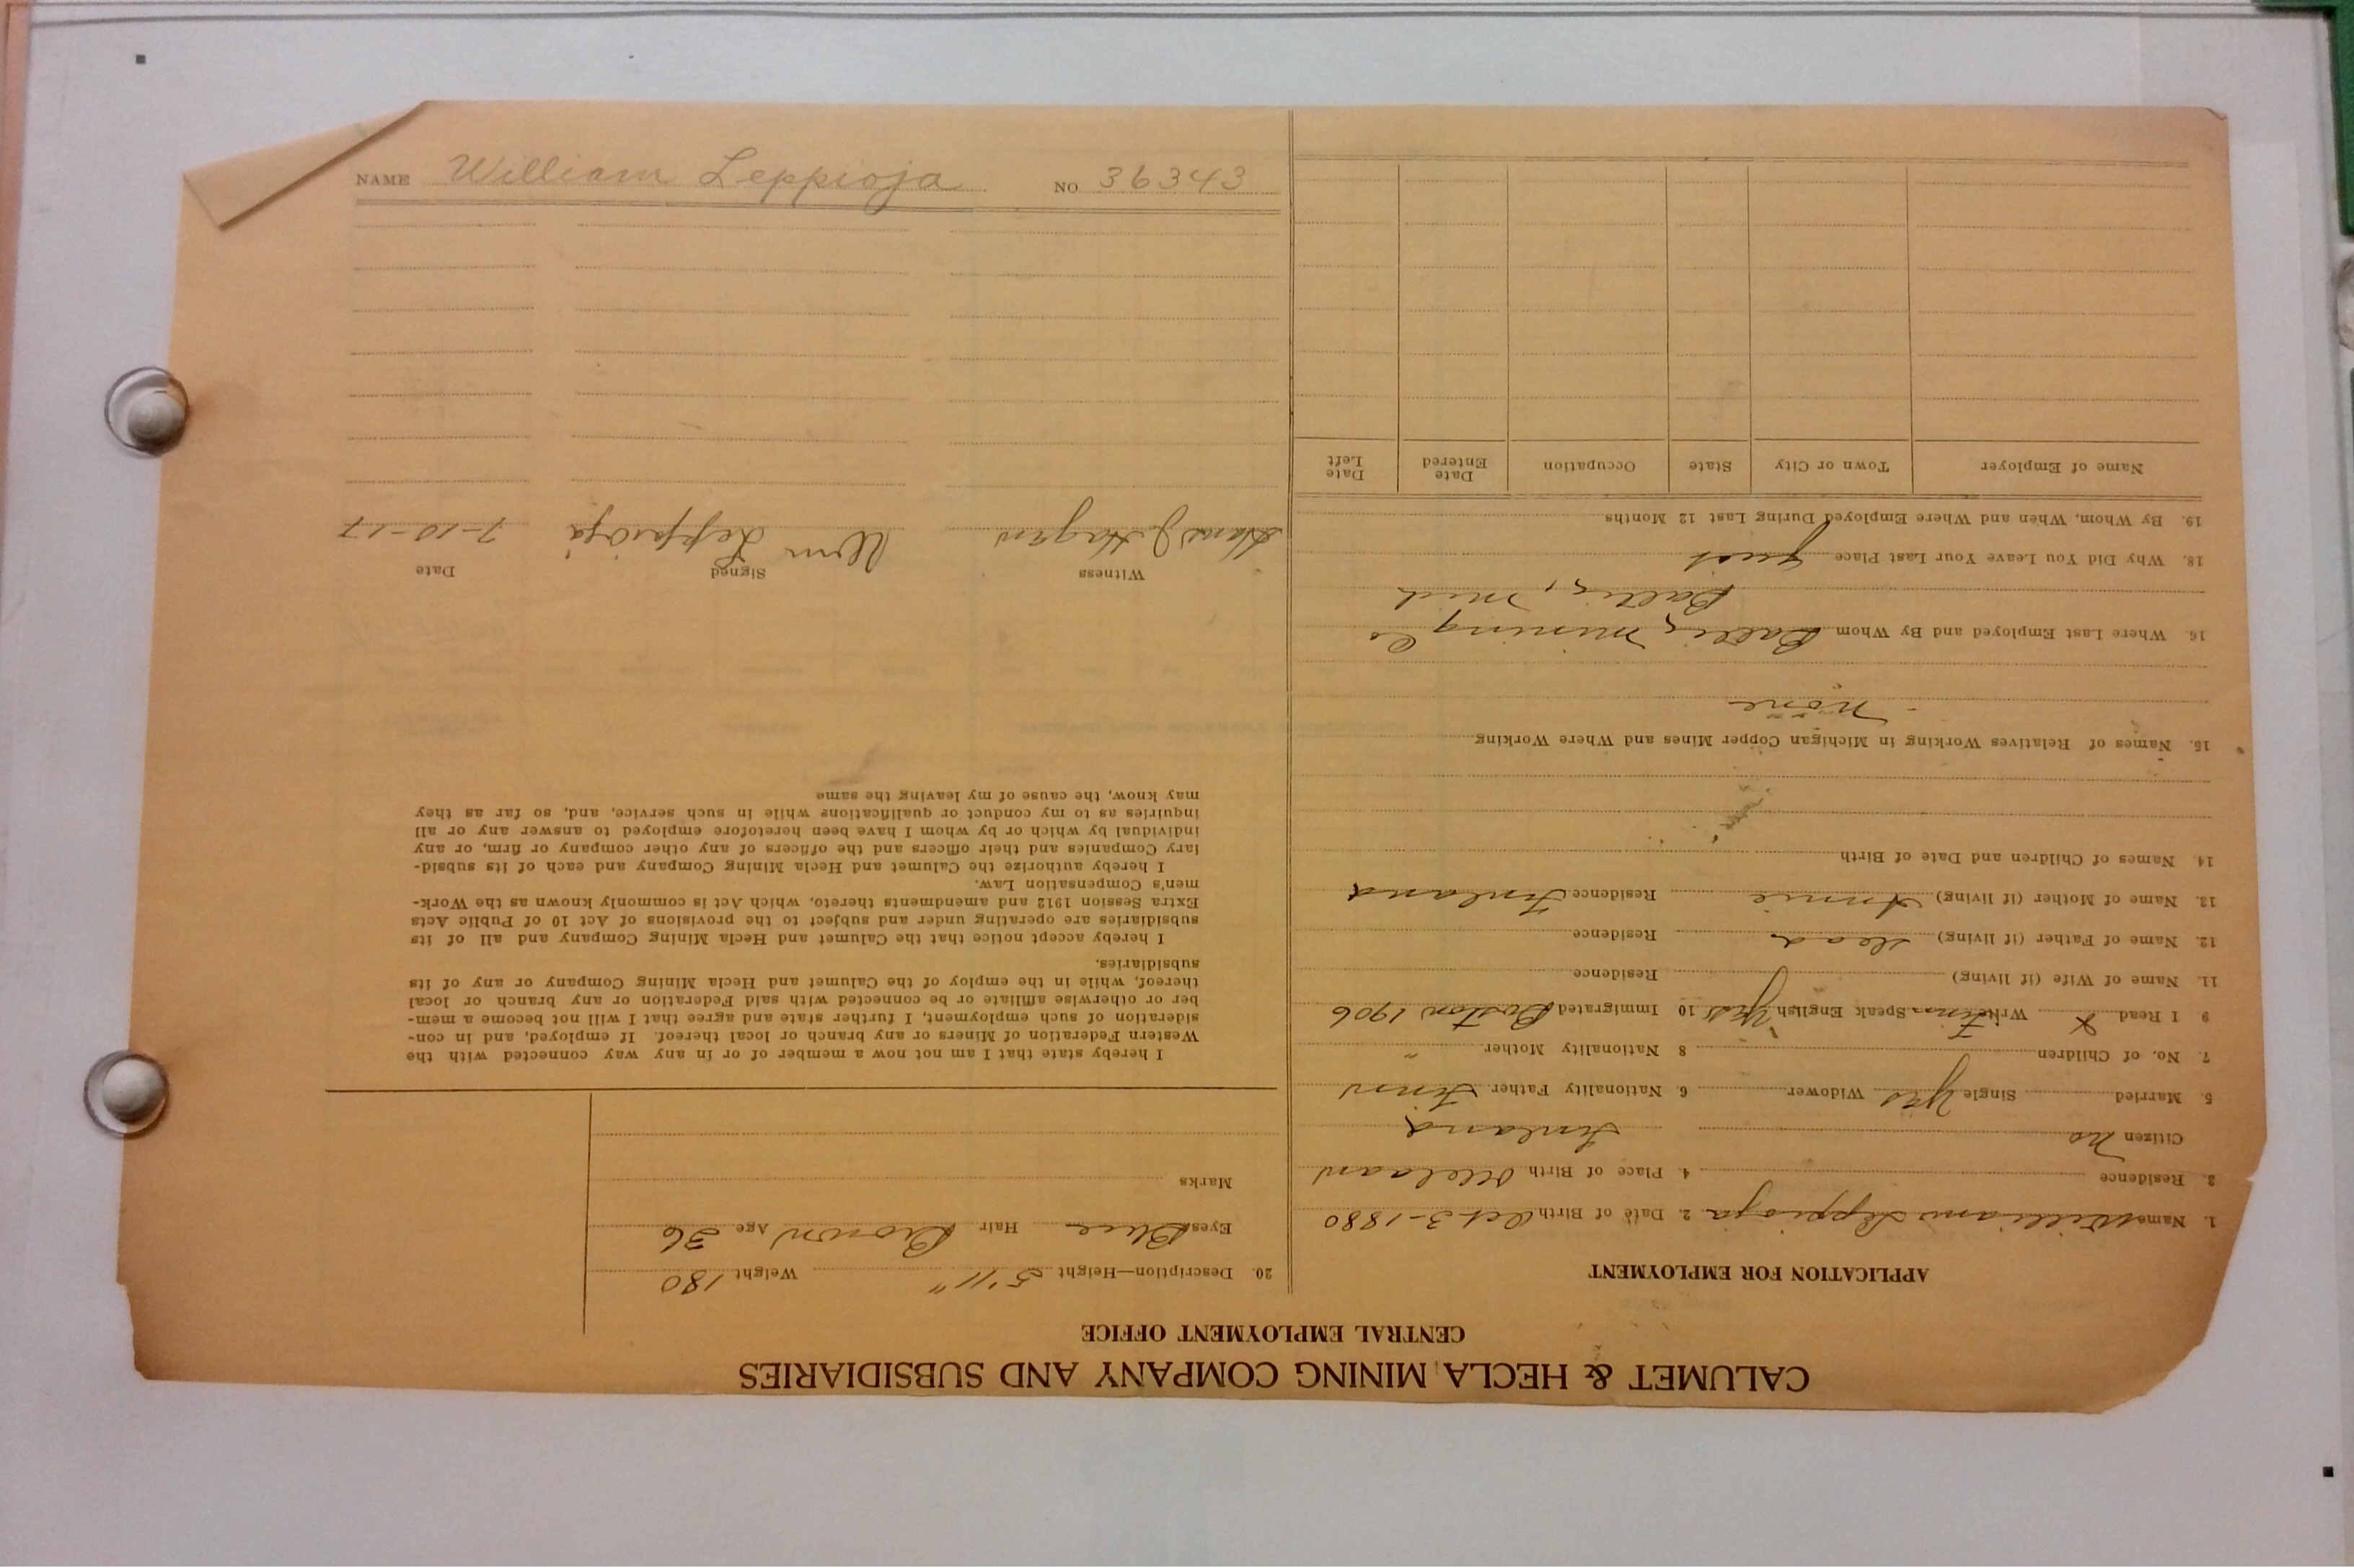 CALUMET & HECLA MINING COMPANY AND SUBSIDIARIES
CENTRAL EMPLOYMENT OFFICE
APPLICATION FOR EMPLOYMENT
1. Name William Leppioja 2. Date of Birth Oct-3-1880
3. Residence 4. Place of Birth
Citizen no Finland
5. Married Single Yes Widower 6. Nationality Father Finn
7. No. of Children 8 Nationality Mother "
9 I Read x Write Finn Speak English Yes 10 Immigrated Boston 1906
11. Name of Wife (if living) Residence
12. Name of Father (if living) dead Residence
13. Name of Mother (if living) Annie Residence Finland
14. Names of Children and Date of Birth
15. Names of Relatives Working in Michigan Copper Mines and Where Working
none
16. Where Last Employed and By Whom Baltic Mining Co
Baltic, Mich
18. Why Did You Leave Your Last Place quit
19. By Whom, When and Where Employed During Last 12 Months
Name of Employer Town or City State Occupation Date Entered Date Left
20. Description—Height 5'11" Weight 180
Eyes Blue Hair Brown Age 36
Marks
I hereby state that I am not now a member of or in any way connected with the
Western Federation of Miners or any branch or local thereof. If employed, and in con-
sideration of such employment, I further state and agree that I will not become a mem-
ber or otherwise affiliate or be connected with said Federation or any branch or local
thereof, while in the employ of the Calumet and Hecla Mining Company or any of its
subsidiaries.
I hereby accept notice that the Calumet and Hecla Mining Company and all of its
subsidiaries are operating under and subject to the provisions of Act 10 of Public Acts
Extra Session 1912 and amendments thereto, which Act is commonly known as the Work-
men's Compensation Law.
I hereby authorize the Calumet and Hecla Mining Company and each of its subsid-
iary Companies and their officers and the officers of any other company or firm, or any
individual by which or by whom I have been heretofore employed to answer any or all
inquiries as to my conduct or qualifications while in such service, and, so far as they
may know, the cause of my leaving the same
Witness Signed Date
J Hagan Wm Leppioja 7-10-17
NAME William Leppioja NO 36343